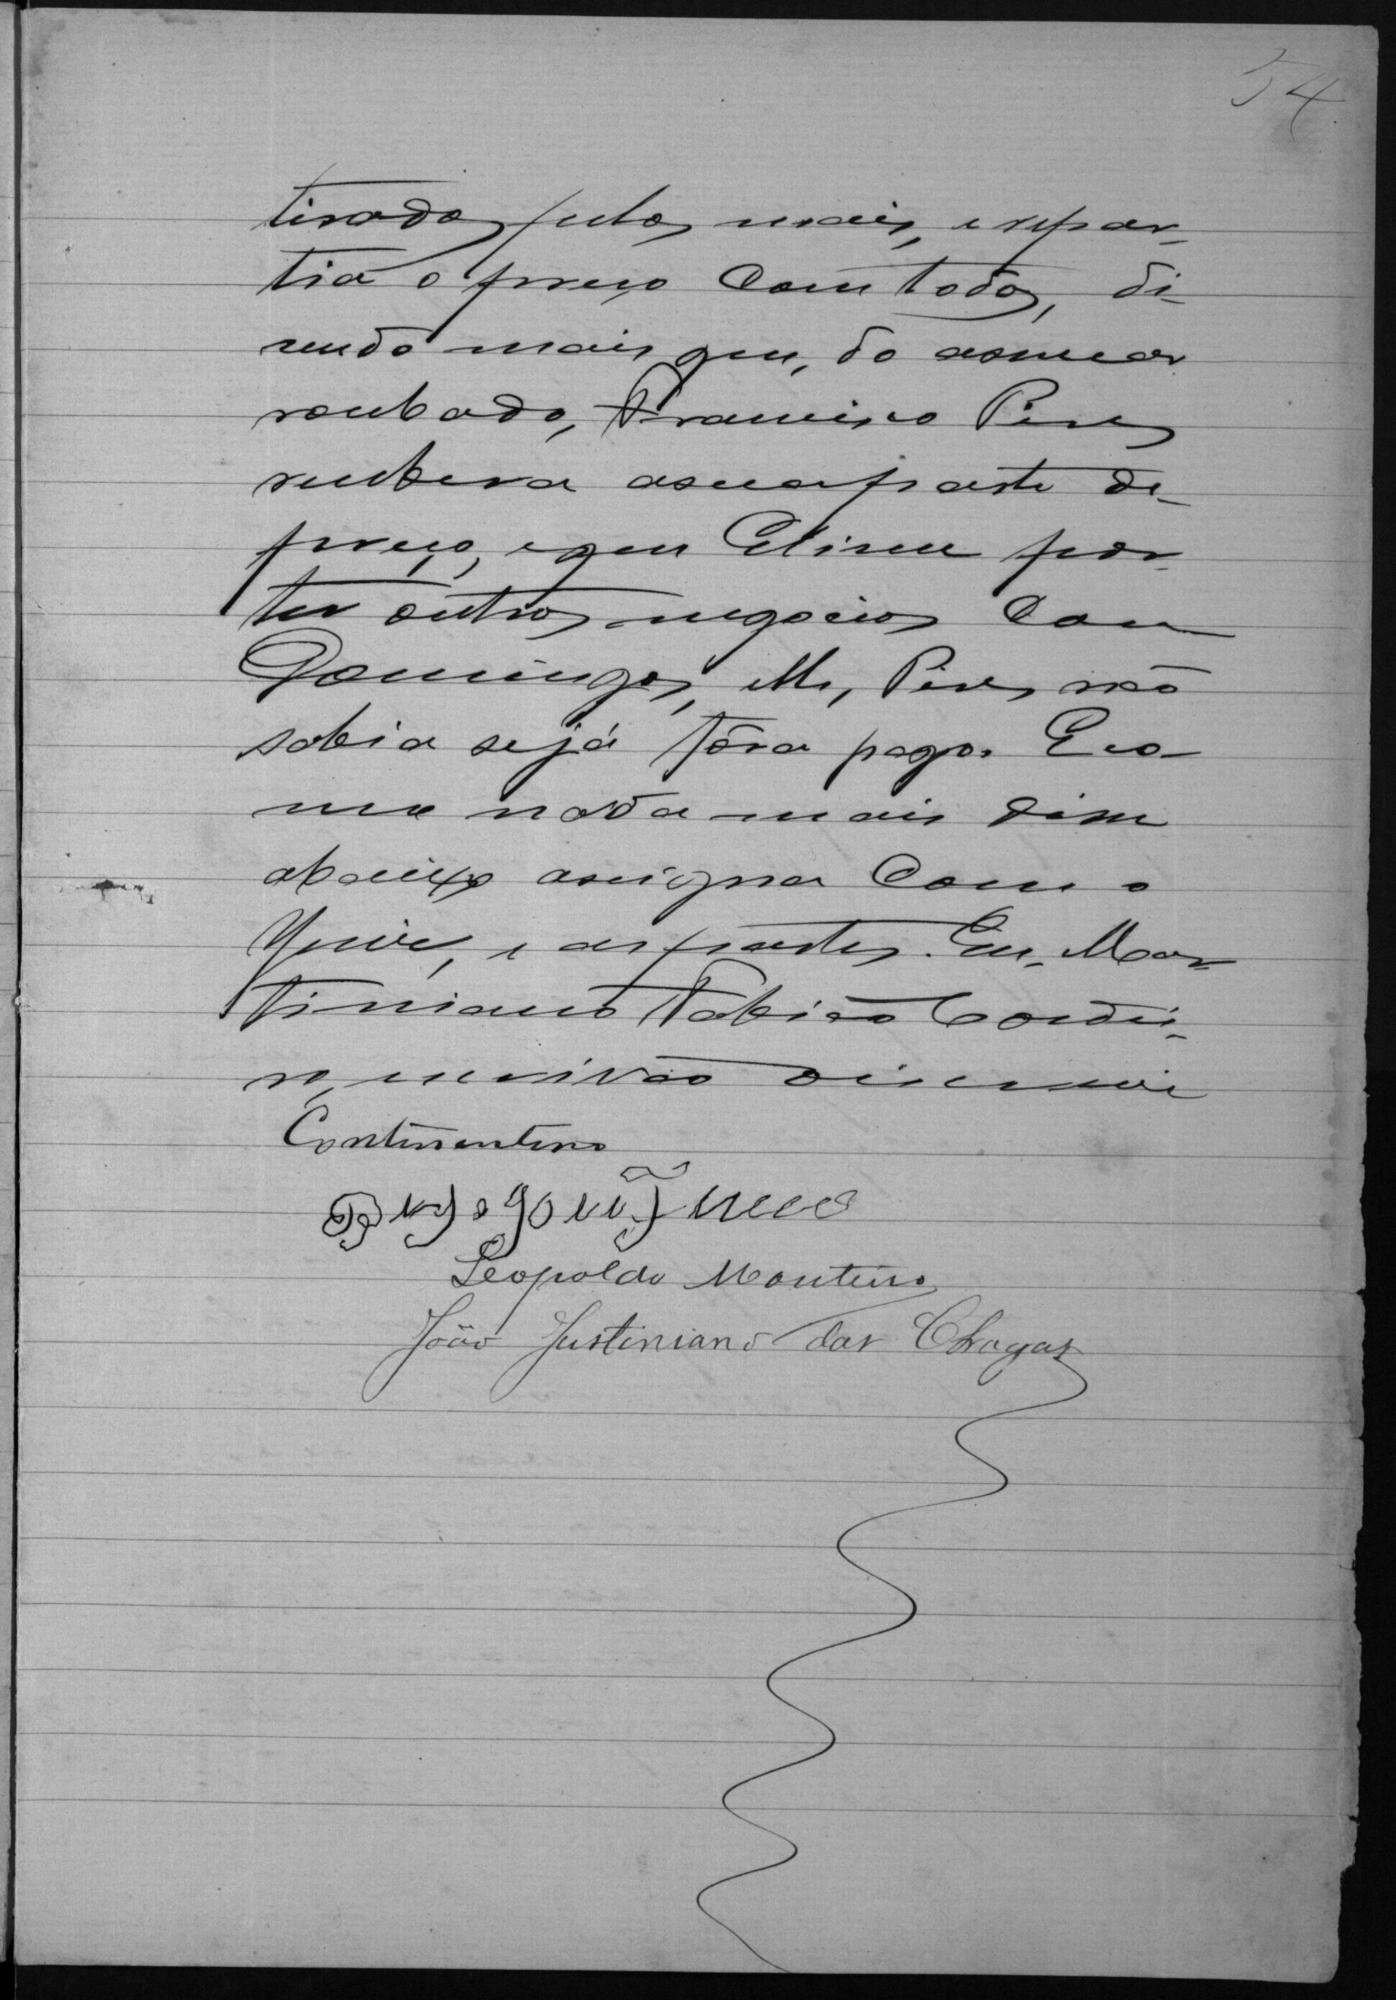 54
tirados pelos mais, e repar-
tia o preço com todos, di-
zendo mais que, do assucar
roubado, Francisco Pires
recebera a sua parte de
preço, e que Eliseu por
ter outros negocios com
Domingos, elle, Pires não
sabia se já fôra pago. E co-
mo nada mais disse
abaixo assigna com o
Juiz, e as partes. Eu, Mar-
tiniano Fabião Cordei-
ro, escrivão o escrevi
Continentino
Leopoldo Monteiro
João Justiniano das Chagas